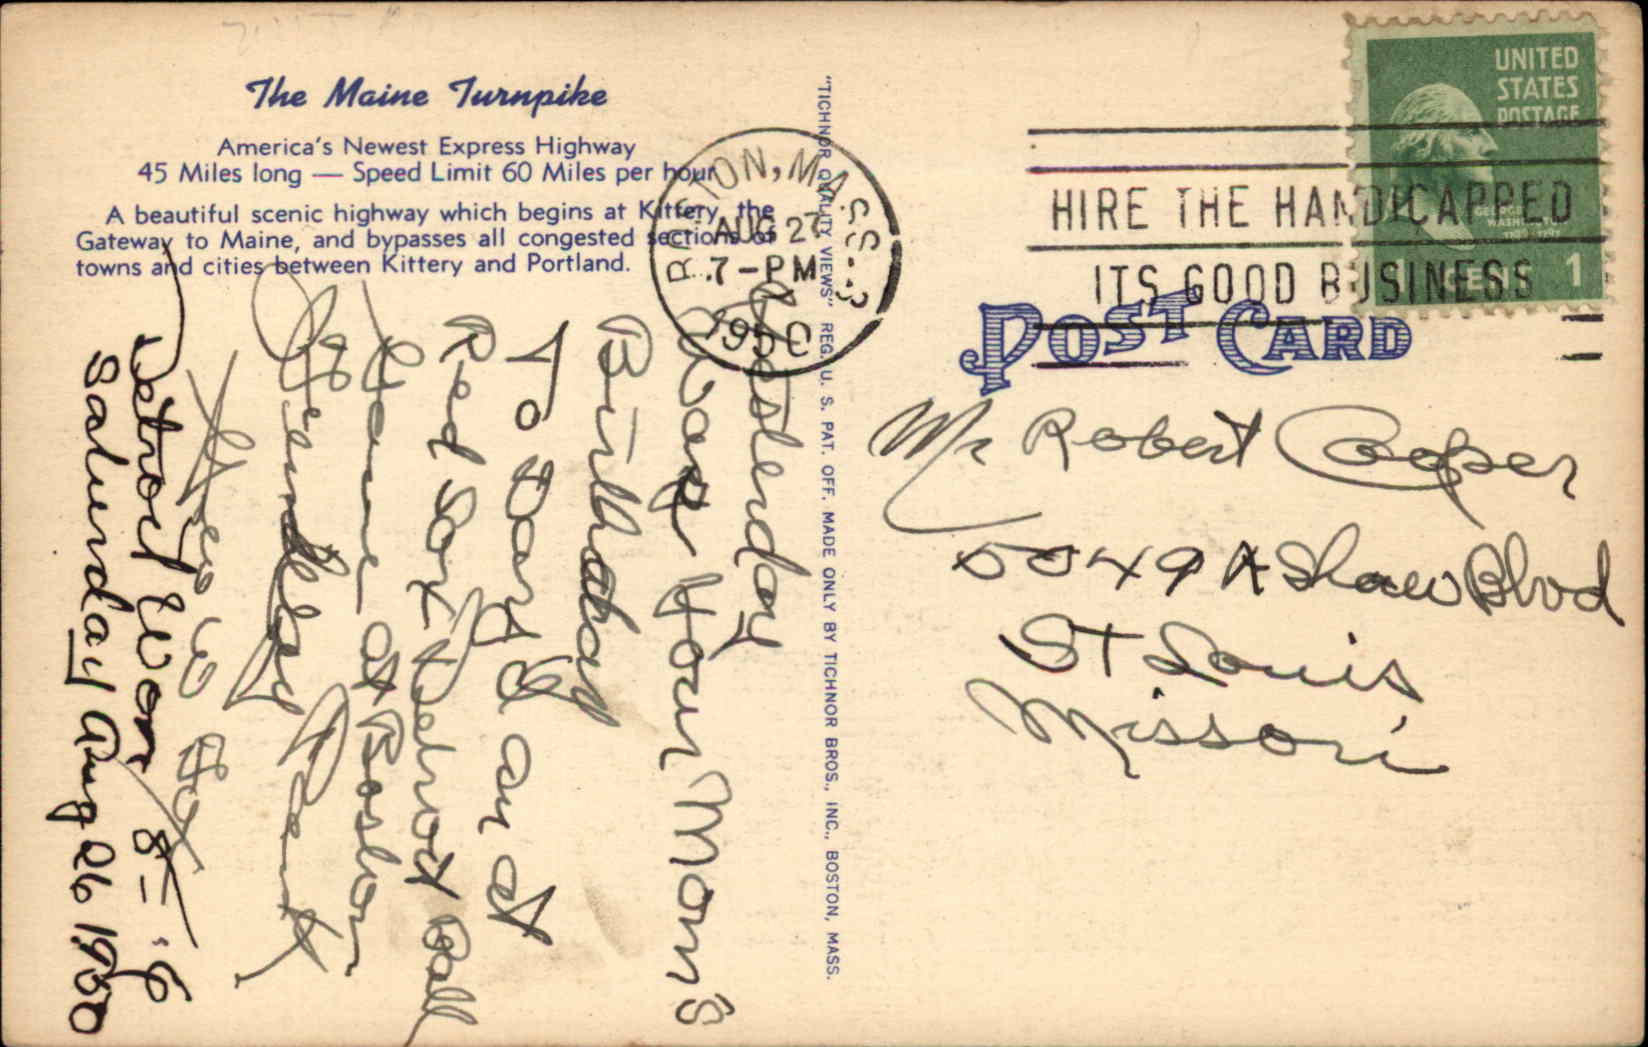 The Maine Turnpike
America's Newest Express Highway
45 Miles long — Speed Limit 60 Miles per hour
A beautiful scenic highway which begins at Kittery, the
Gateway to Maine, and bypasses all congested sections of
towns and cities between Kittery and Portland.
"TICHNOR QUALITY VIEWS" REG. U. S. PAT. OFF. MADE ONLY BY TICHNOR BROS., INC., BOSTON, MASS.
TON, MASS.-3
AUG 27
7-PM
1950
HIRE THE HANDICAPPED
ITS GOOD BUSINESS
UNITED
STATES
POSTAGE
1
POST CARD
Mr Robert Cooper
5049 A Shaw Blvd
St Louis
Missori
Yesterday
Was Your Moms
Birthday
To Day is at
Red Sox Detroit Ball
Game at Boston
Detroit Won 8-6
Saturday Aug 26 1950